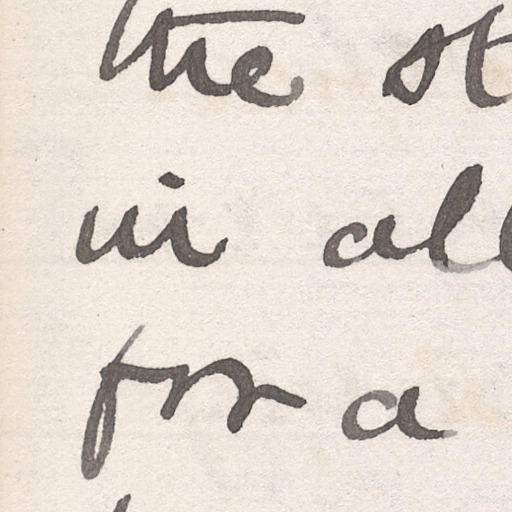 the st
in all
for a